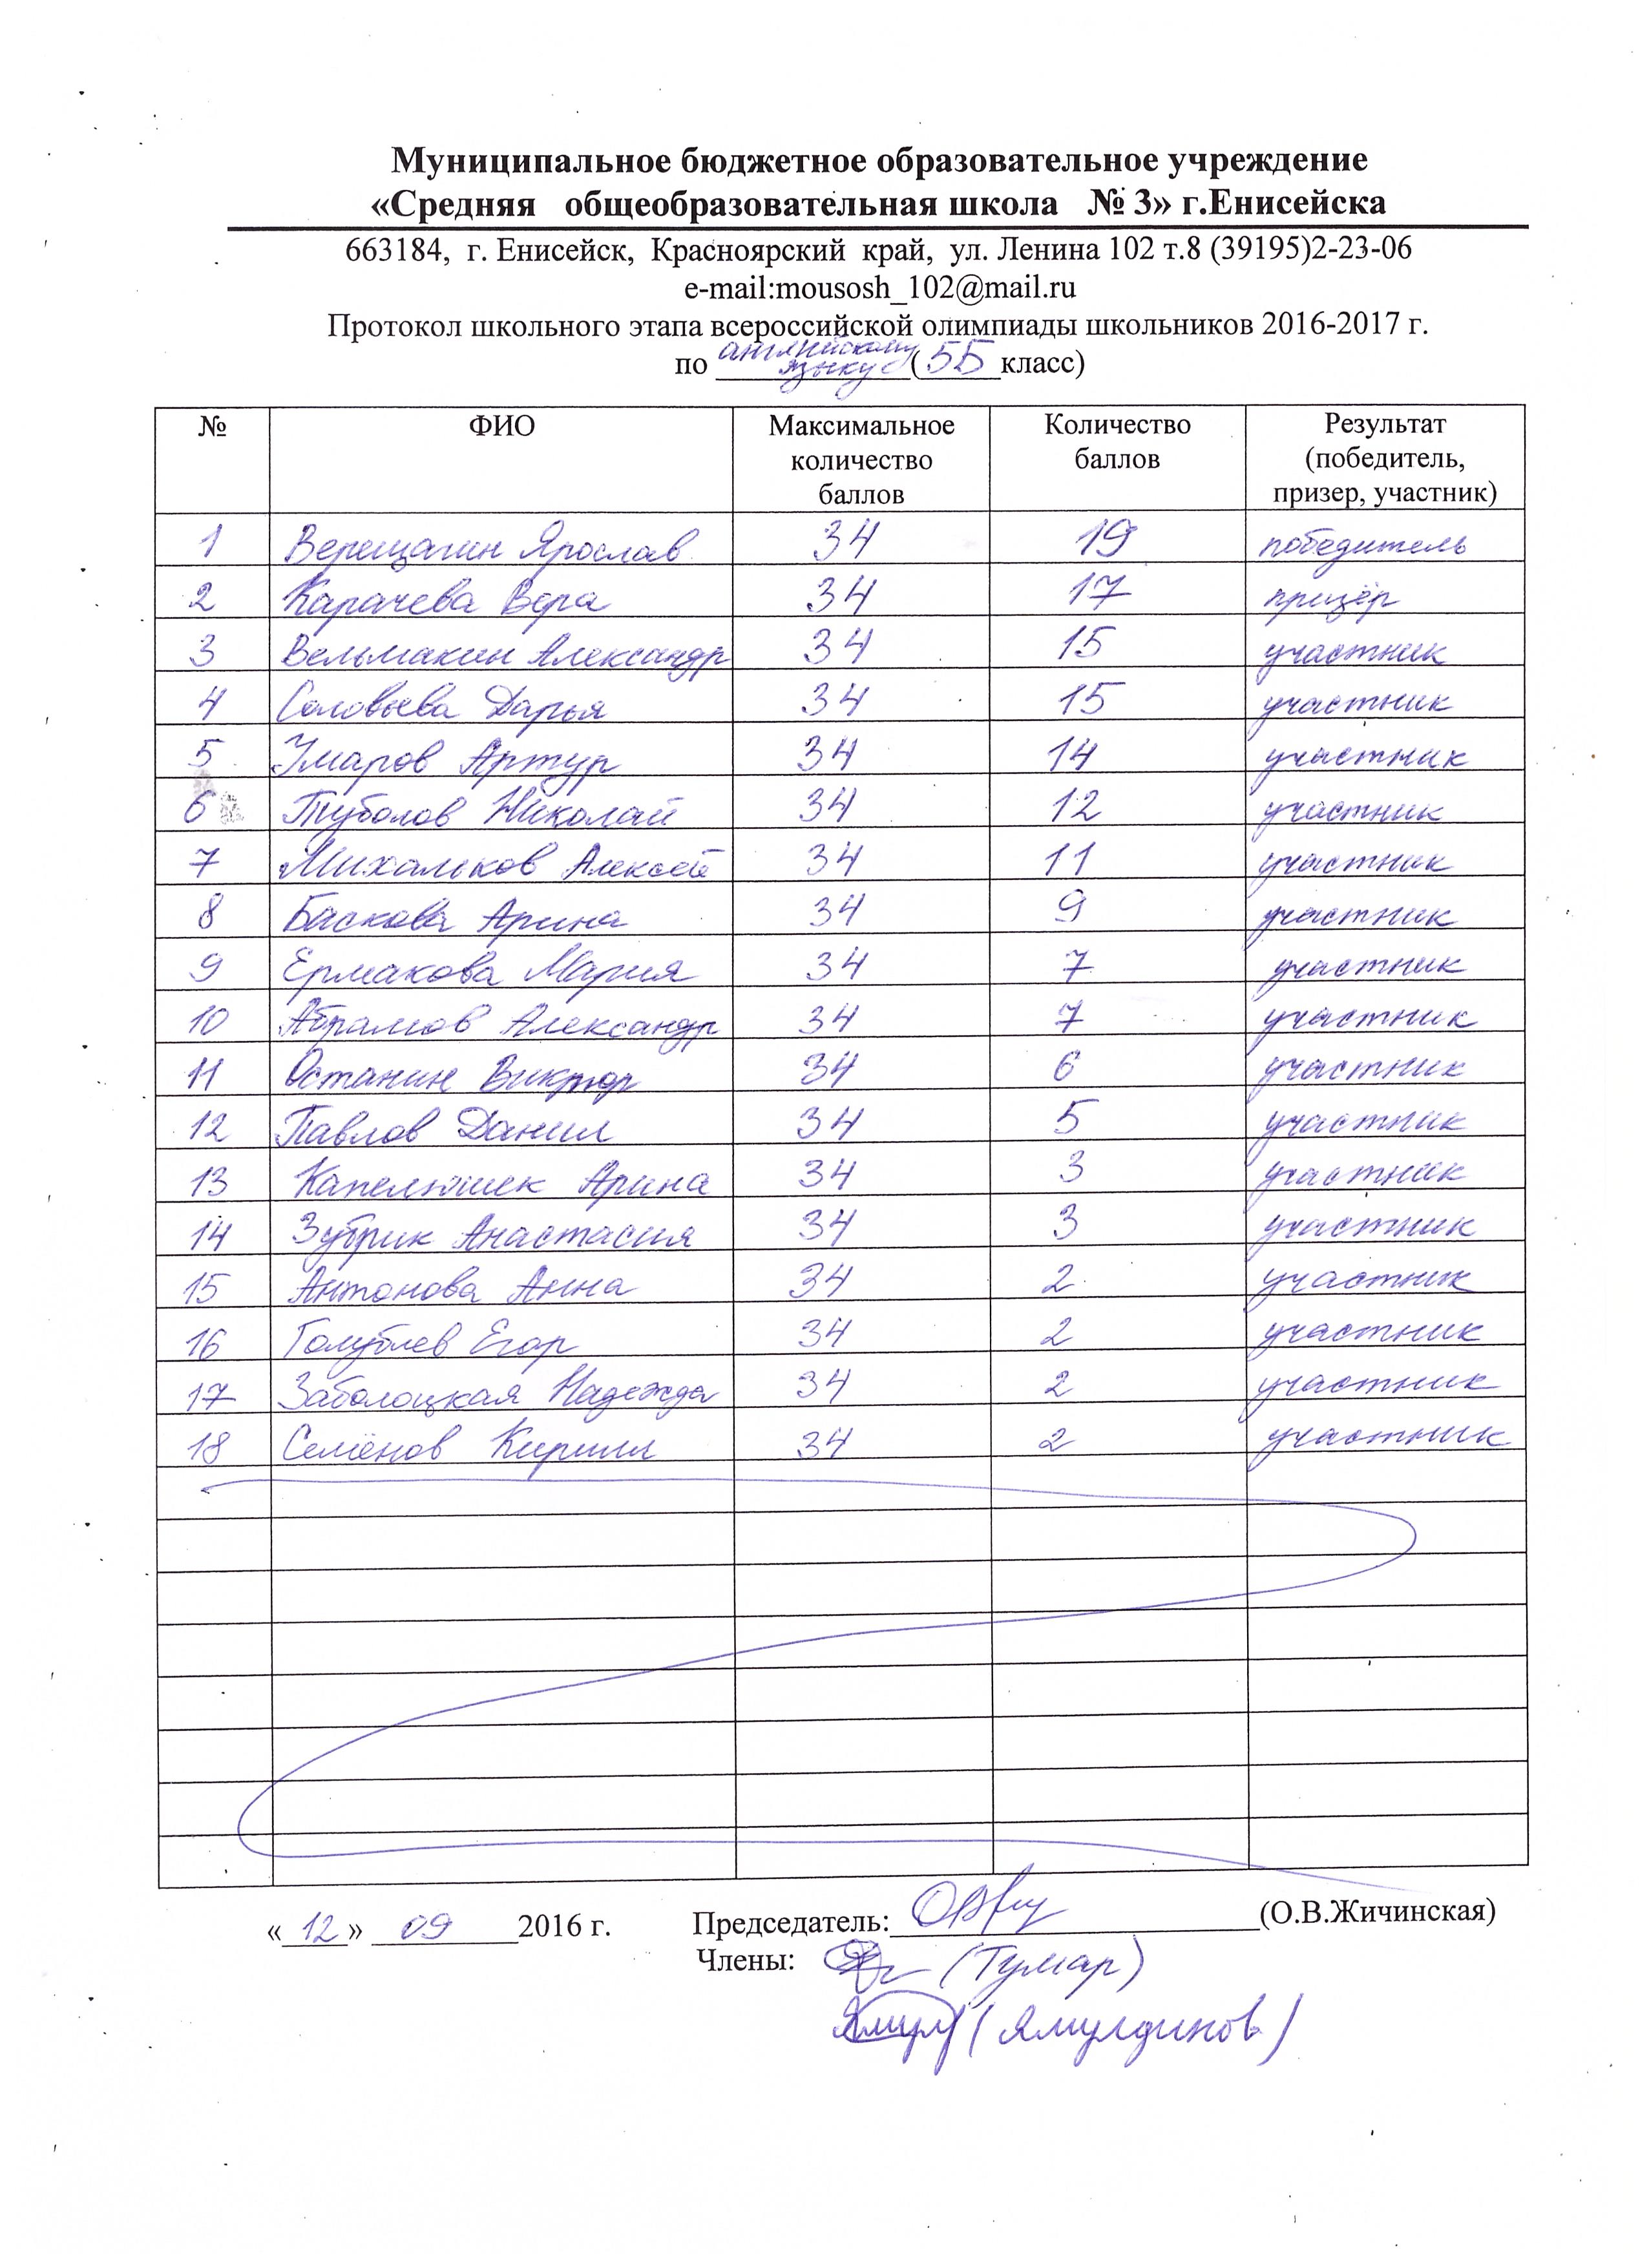 Муниципальное бюджетное образовательное учреждение
«Средняя общеобразовательная школа № 3» г.Енисейска
663184, г. Енисейск, Красноярский край, ул. Ленина 102 т.8 (39195)2-23-06
e-mail:mousosh_102@mail.ru
Протокол школьного этапа всероссийской олимпиады школьников 2016-2017 г.
по английскому языку (5Б класс)
№ ФИО Максимальное количество баллов Количество баллов Результат (победитель, призер, участник)
1 Верещагин Ярослав 34 19 победитель
2 Карачева Вера 34 17 призёр
3 Вельмакин Александр 34 15 участник
4 Соловьева Дарья 34 15 участник
5 Умаров Артур 34 14 участник
6 Туболов Николай 34 12 участник
7 Михальков Алексей 34 11 участник
8 Баскова Арина 34 9 участник
9 Ермакова Мария 34 7 участник
10 Абрамов Александр 34 7 участник
11 Останин Виктор 34 6 участник
12 Павлов Данил 34 5 участник
13 Капелюшек Арина 34 3 участник
14 Зубрик Анастасия 34 3 участник
15 Антонова Анна 34 2 участник
16 Голублев Егор 34 2 участник
17 Заболоцкая Надежда 34 2 участник
18 Семёнов Кирилл 34 2 участник
«12» 09 2016 г. Председатель: (О.В.Жичинская)
Члены: (Тумар)
(Ямулдинов)